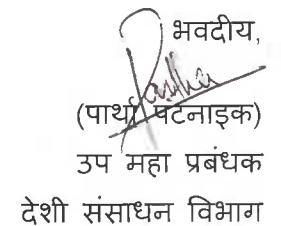 भवदीय,
(पार्था पटनाइक)
उप महा प्रबंधक
देशी संसाधन विभाग